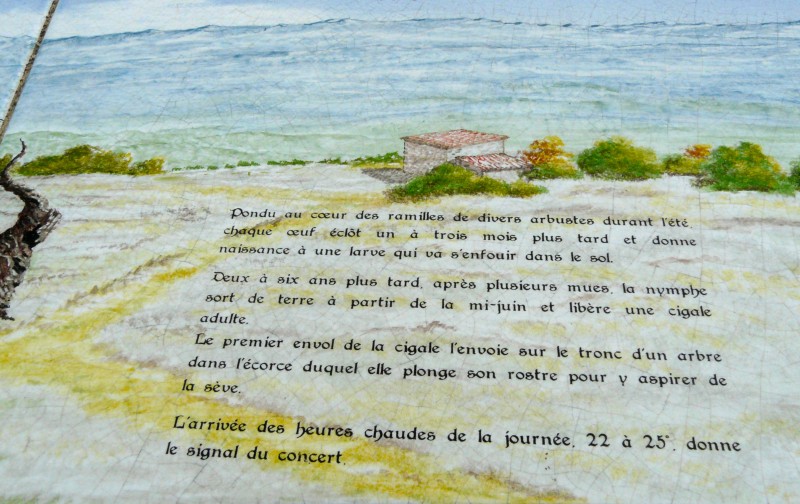 Pondu au cœur des ramilles de divers arbustes durant l'été,
chaque œuf éclôt un à trois mois plus tard et donne
naissance à une larve qui va s'enfouir dans le sol.
Deux à six ans plus tard, après plusieurs mues, la nymphe
sort de terre à partir de la mi-juin et libère une cigale
adulte.
Le premier envol de la cigale l'envoie sur le tronc d'un arbre
dans l'écorce duquel elle plonge son rostre pour y aspirer de
la sève.
L'arrivée des heures chaudes de la journée, 22 à 25°, donne
le signal du concert.